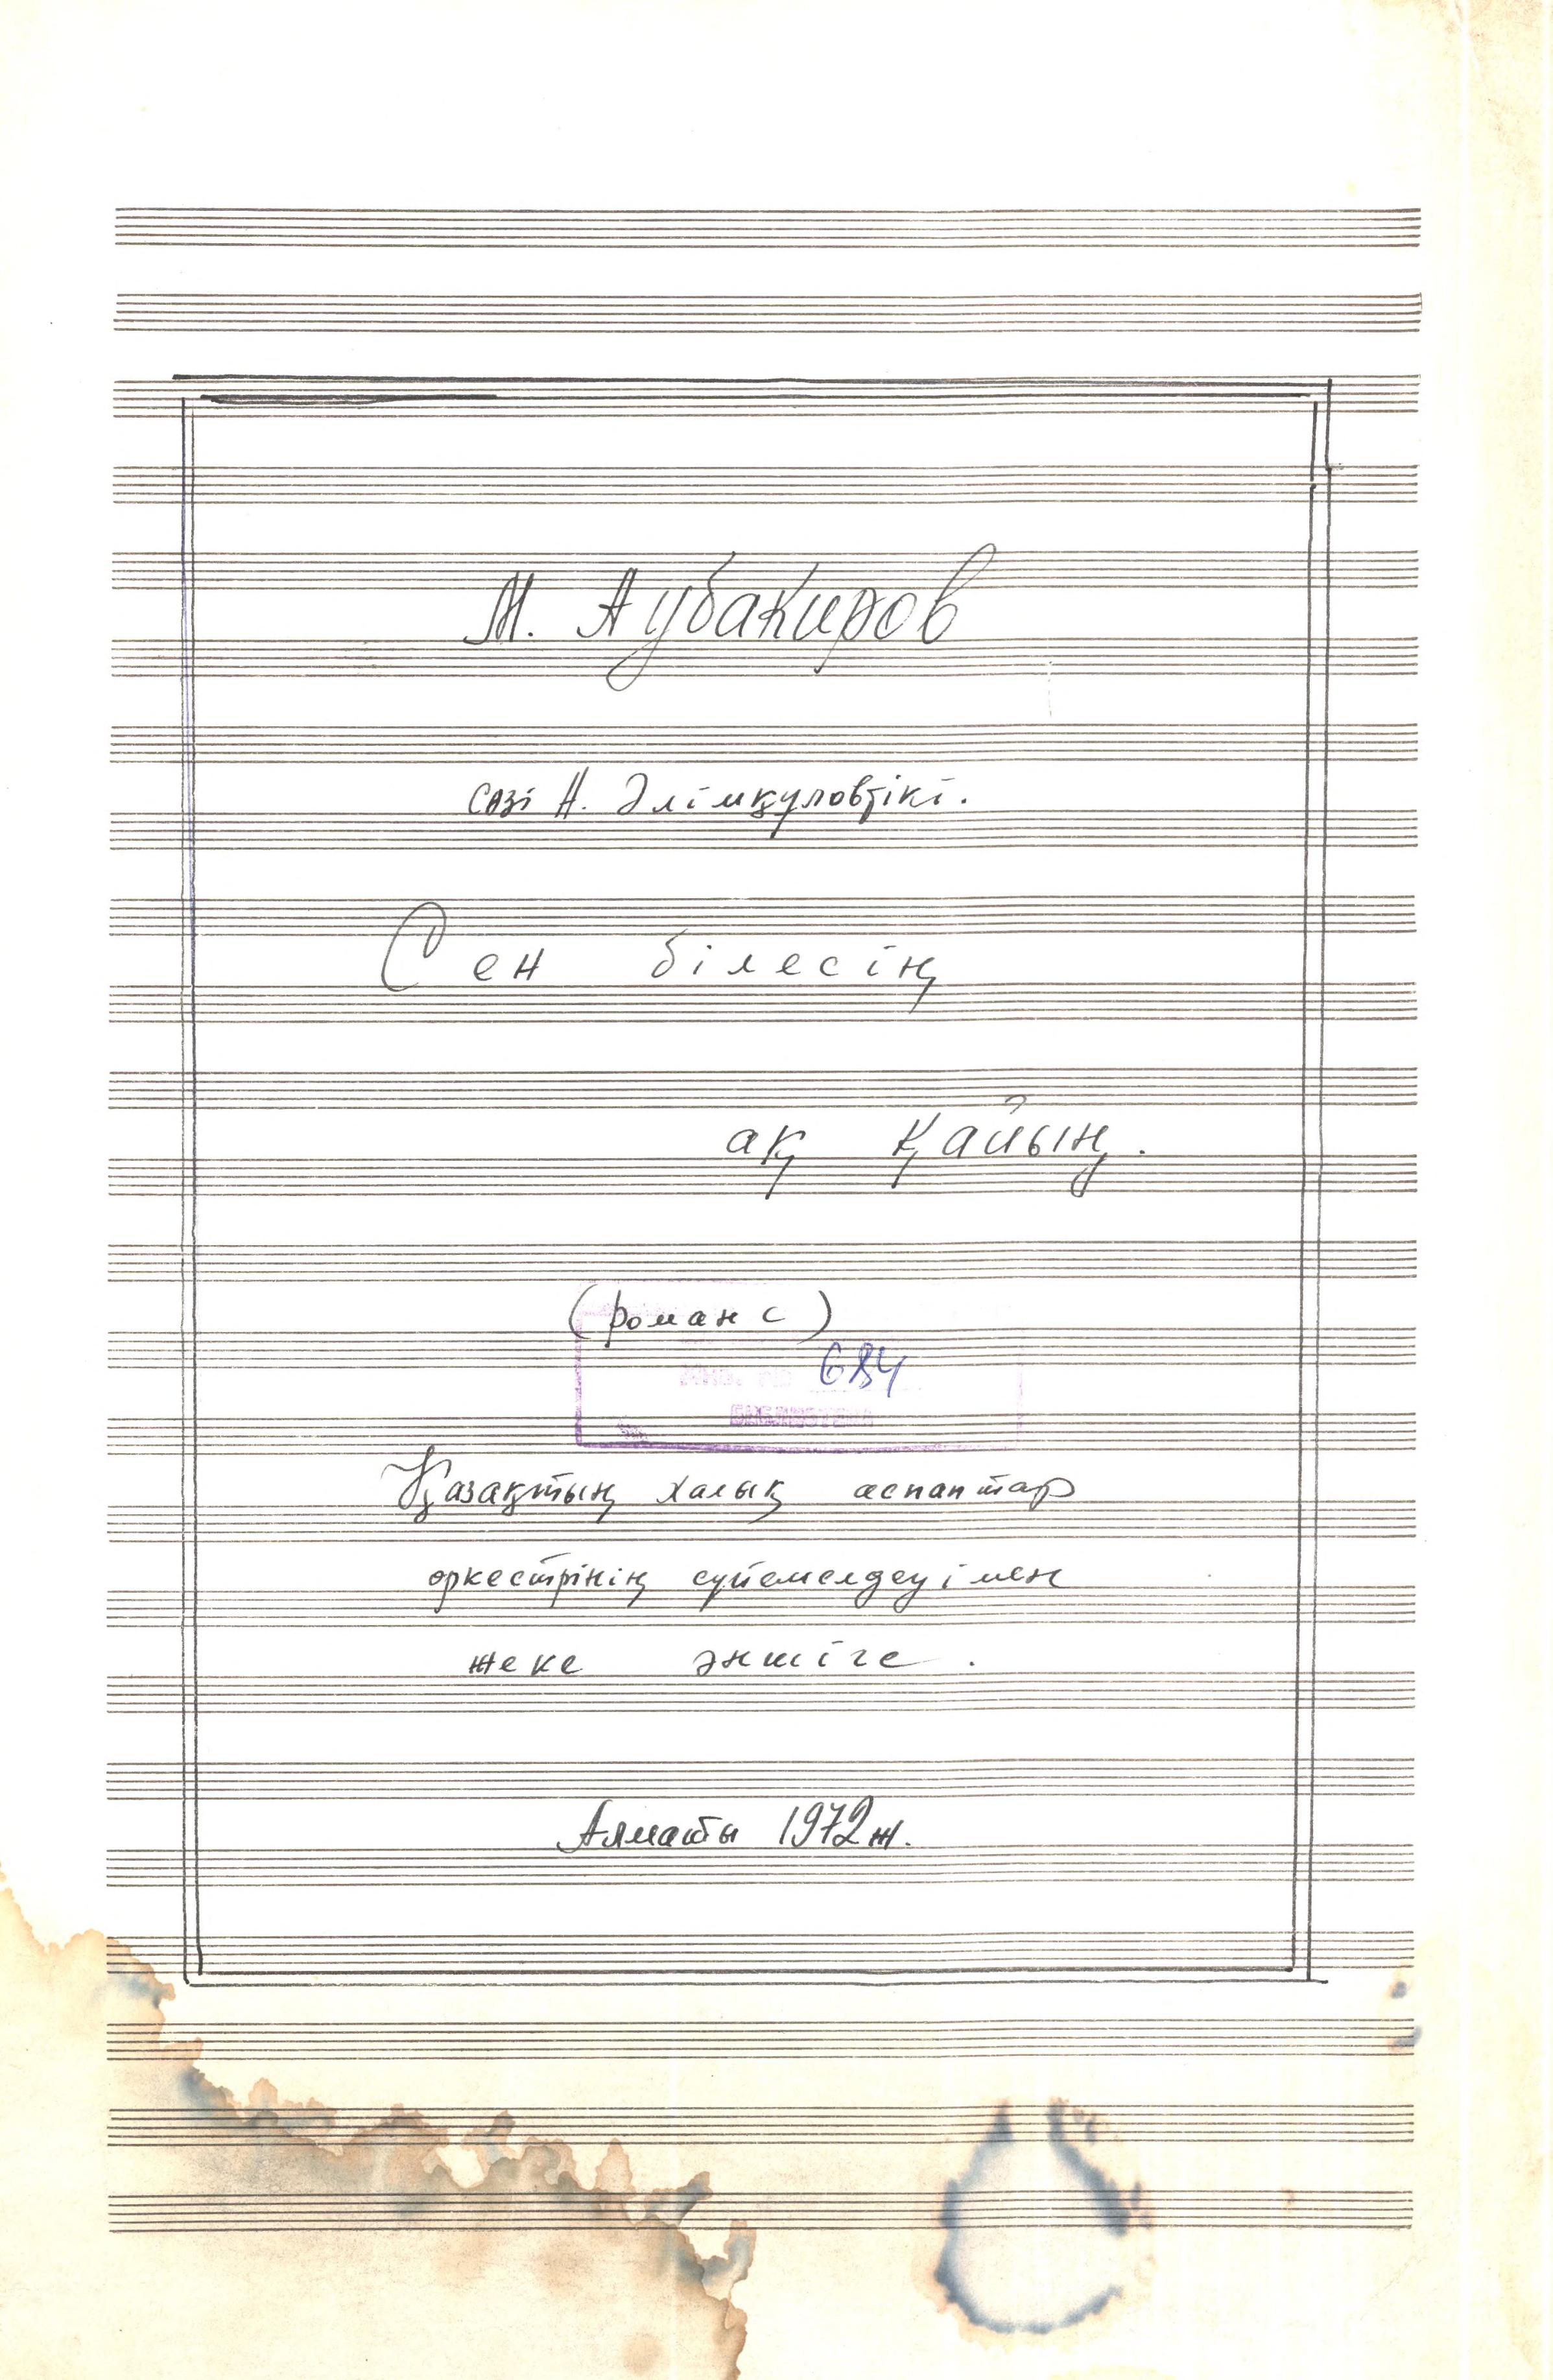 М. Аубакиров
сөзі А. Әлімқұловтікі.
Сен білесің
ақ қайың.
(романс)
Инв. № 684
БИБЛИОТЕКА
Қазақтың халық аспаптар
оркестрінің сүйемелдеуімен
жеке әншіге.
Алматы 1972 ж.